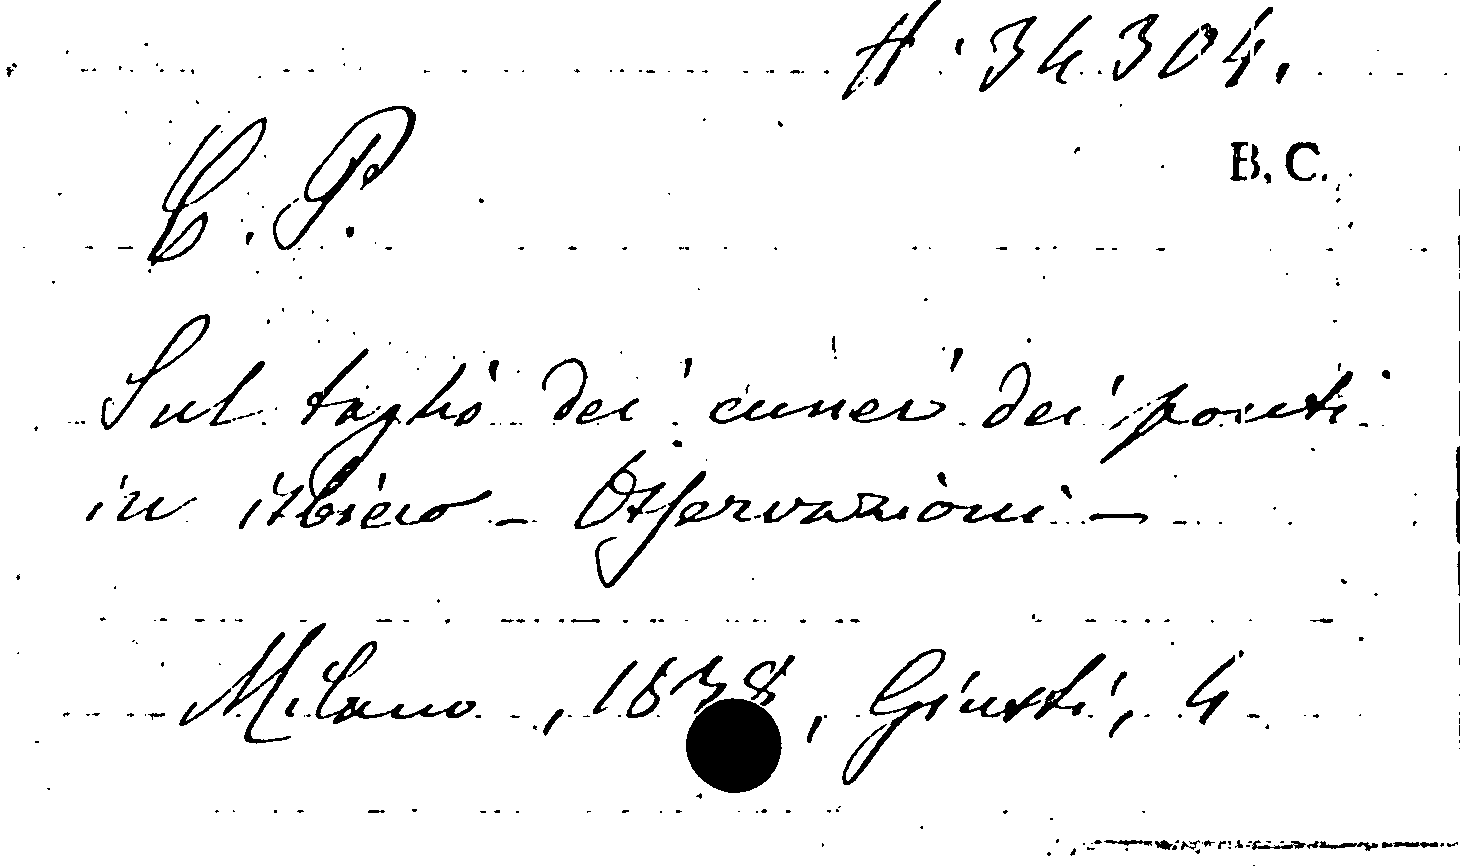 H. 34304.
B. C.
C. P.
Sul taglio dei cunei dei ponti
in isbieco - Osservazioni -
Milano, 1838, Giusti, 4